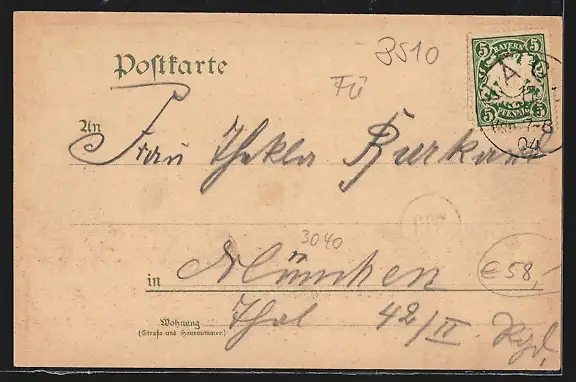 Postkarte
3510
Fü
5 BAYERN 5
5 PFENNIG 5
7-8
04
An
Frau Thekla Burkart
3040
in München
€ 58,-
Wohnung
(Straße und Hausnummer)
Thal 42/II